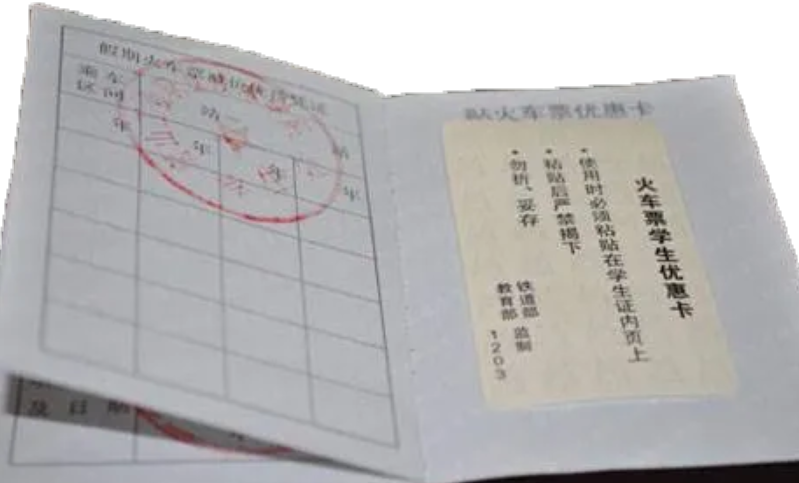 假期火车票
乘车
区间
站—
站
年 年 年 年
及日期
贴火车票优惠卡
火车票学生优惠卡
•使用时必须粘贴在学生证内页上
•粘贴后严禁揭下
•勿折、妥存
铁道部
教育部
监制
1203